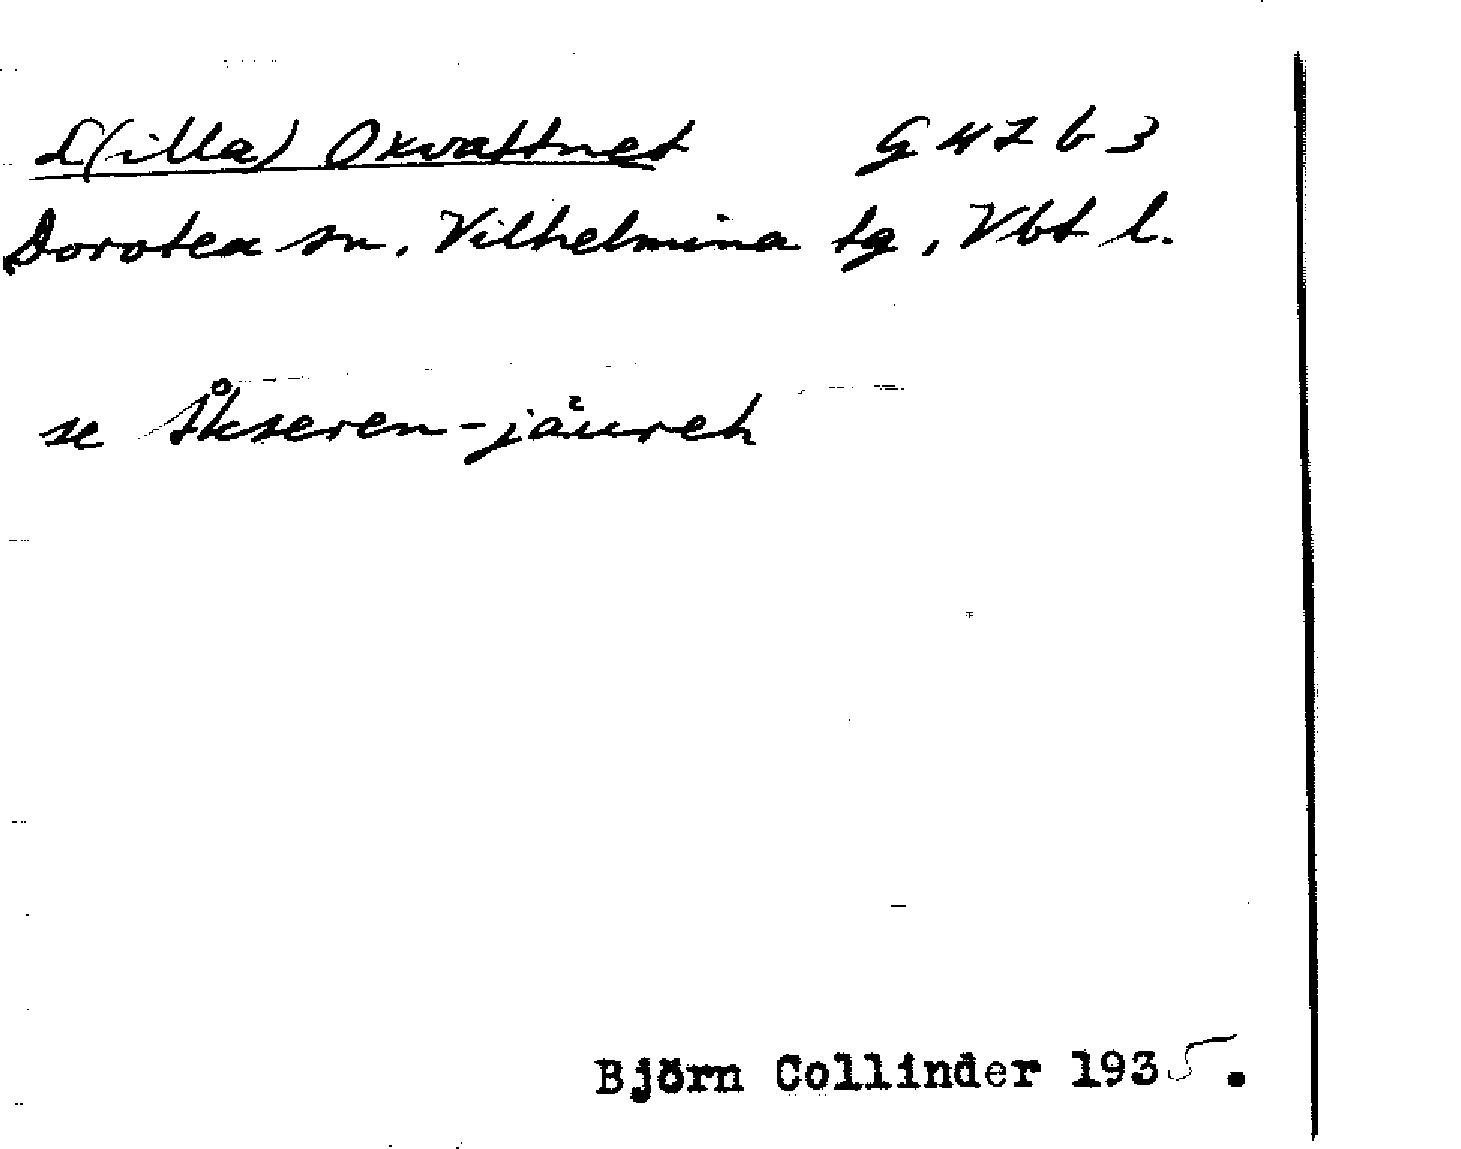 L(illa) Oxvattnet G 47 b 3
Dorotea sn. Vilhelmina tg, Vbt l.
se Åkseren-jäureh
Björn Collinder 1935.